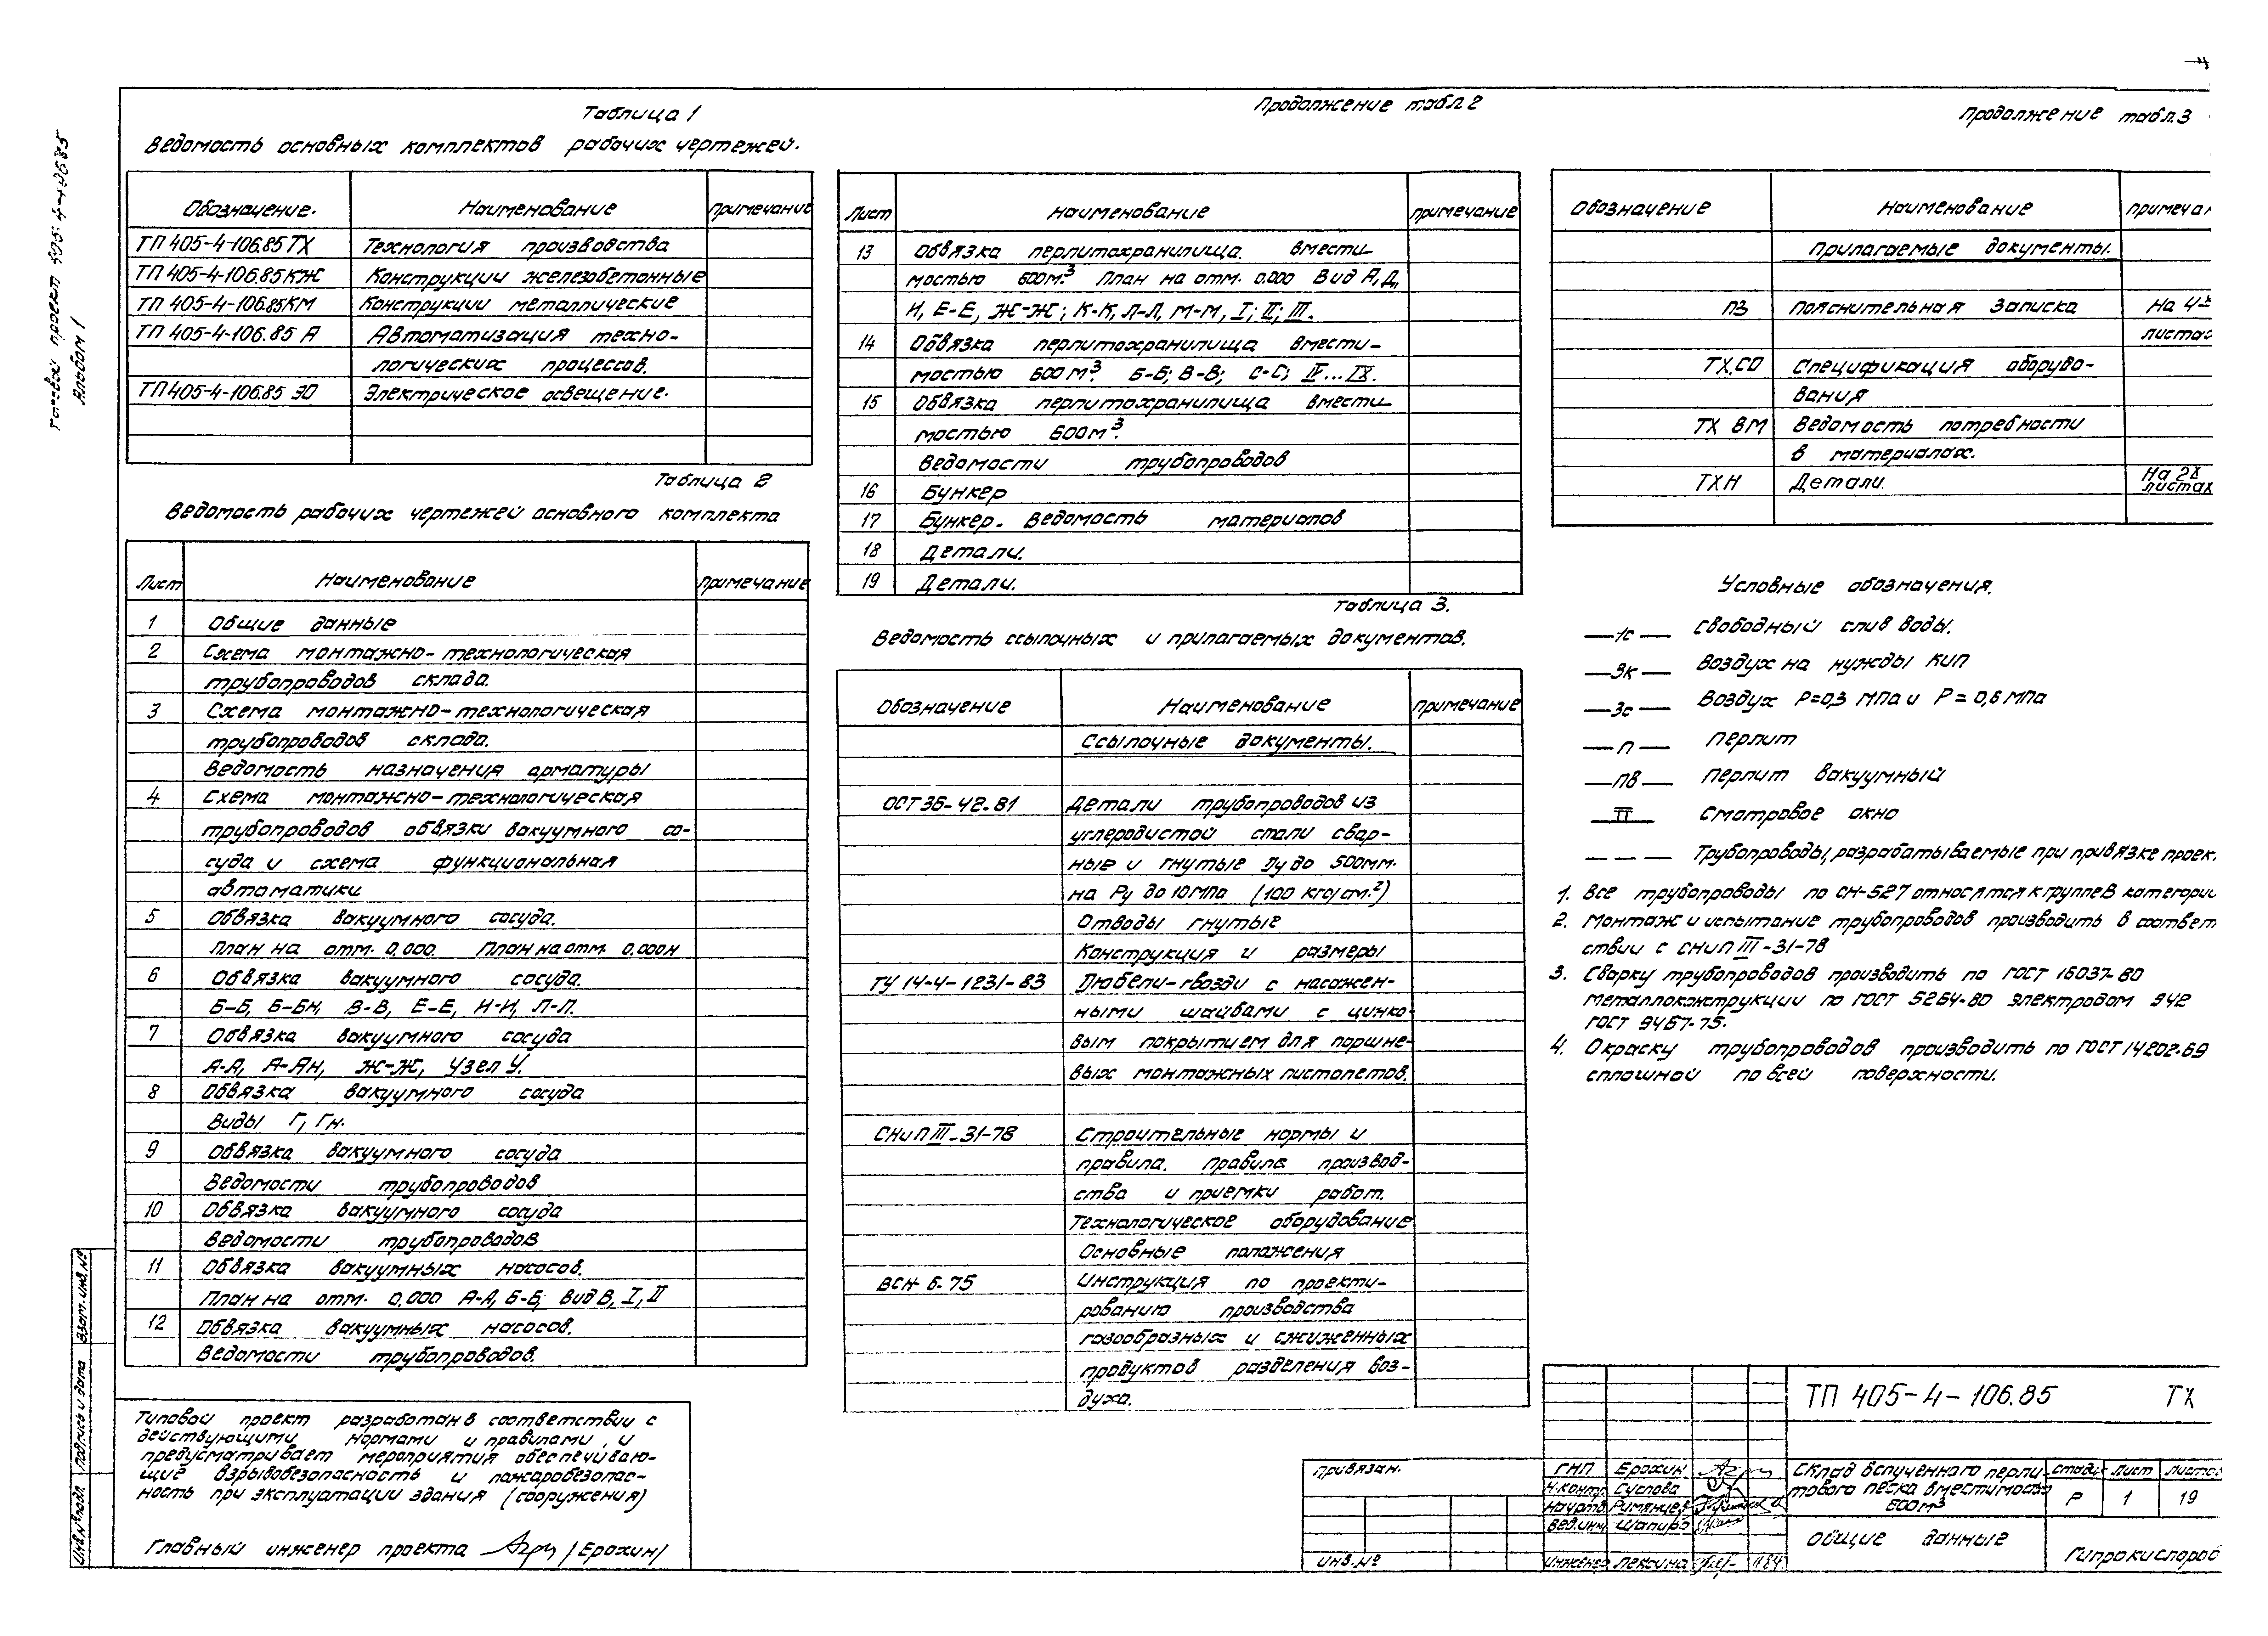 4
Типовой проект 405-4-106.85
Альбом 1
Таблица 1
Ведомость основных комплектов рабочих чертежей.
Обозначение. Наименование Примечание
ТП 405-4-106.85 ТХ Технология производства
ТП 405-4-106.85 КЖ Конструкции железобетонные
ТП 405-4-106.85 КМ Конструкции металлические
ТП 405-4-106.85 А Автоматизация техно-
логических процессов.
ТП 405-4-106.85 ЭО Электрическое освещение.
Таблица 2
Ведомость рабочих чертежей основного комплекта
Лист Наименование Примечание
1 Общие данные
2 Схема монтажно-технологическая
трубопроводов склада.
3 Схема монтажно-технологическая
трубопроводов склада.
Ведомость назначения арматуры
4 Схема монтажно-технологическая
трубопроводов обвязки вакуумного со-
суда и схема функциональная
автоматики
5 Обвязка вакуумного сосуда.
План на отм. 0,000. План на отм. 0.000н
6 Обвязка вакуумного сосуда.
Б-Б, Б-Бн, В-В, Е-Е, И-И, Л-Л.
7 Обвязка вакуумного сосуда
А-А, А-Ан, Ж-Ж, Узел У.
8 Обвязка вакуумного сосуда
Виды Г, Гн.
9 Обвязка вакуумного сосуда
Ведомости трубопроводов
10 Обвязка вакуумного сосуда
Ведомости трубопроводов
11 Обвязка вакуумных насосов.
План на отм. 0,000 А-А, Б-Б; вид В, I, II
12 Обвязка вакуумных насосов.
Ведомости трубопроводов.
Типовой проект разработан в соответствии с
действующими нормами и правилами, и
предусматривает мероприятия обеспечиваю-
щие взрывобезопасность и пожаробезопас-
ность при эксплуатации здания (сооружения)
Главный инженер проекта /Ерохин/
Продолжение табл. 2
Лист Наименование Примечание
13 Обвязка перлитохранилища. вмести-
мостью 600м³. План на отм. 0.000 Вид А, Д,
И, Е-Е, Ж-Ж; К-К, Л-Л, М-М, I; II; III.
14 Обвязка перлитохранилища вмести-
мостью 600м³. Б-Б; В-В; С-С; IV...IX.
15 Обвязка перлитохранилища вмести-
мостью 600м³.
Ведомости трубопроводов
16 Бункер
17 Бункер. Ведомость материалов
18 Детали.
19 Детали.
Таблица 3.
Ведомость ссылочных и прилагаемых документов.
Обозначение Наименование Примечание
Ссылочные документы.
ОСТ 36-42-81 Детали трубопроводов из
углеродистой стали свар-
ные и гнутые Ду до 500мм.
на Ру до 10мпа (100 кгс/см.²)
Отводы гнутые
Конструкция и размеры
ТУ 14-4-1231-83 Дюбели-гвозди с насажен-
ными шайбами с цинко-
вым покрытием для поршне-
вых монтажных пистолетов.
СНиП III-31-78 Строительные нормы и
правила. Правила производ-
ства и приемки работ.
Технологическое оборудование
Основные положения
ВСН-6-75 Инструкция по проекти-
рованию производства
газообразных и сжиженных
продуктов разделения воз-
духа.
Продолжение табл. 3
Обозначение Наименование Примечан
Прилагаемые документы.
ПЗ Пояснительная Записка На 4-х
листах
ТХ.СО Спецификация оборудо-
вания
ТХ ВМ Ведомость потребности
в материалах.
ТХН Детали. На 2х
листах
Условные обозначения.
1с Свободный слив воды.
3к Воздух на нужды КИП
3с Воздух Р=0,3 МПа и Р=0,6 МПа
П Перлит
ПВ Перлит вакуумный
Смотровое окно
Трубопроводы, разрабатываемые при привязке проек.
1. Все трубопроводы по СН-527 относятся к группе В категории
2. Монтаж и испытание трубопроводов производить в соответ
ствии с СНиП III-31-78
3. Сварку трубопроводов производить по ГОСТ 16037-80
металлоконструкции по ГОСТ 5264-80 электродом Э42
ГОСТ 9467-75.
4. Окраску трубопроводов производить по ГОСТ 14202-69
сплошной по всей поверхности.
Инв.№ подл. Подпись и дата Взам. инв. №
Привязан.
Инв.№
ГИП Ерохин
Н.контр. Суслова
Нач.отд. Румянцев
Вед.инж. Шапиро
Инженер Лексина 11.84
ТП 405-4-106.85 ТХ
Склад вспученного перли-
тового песка вместимостью
600м³
Стадия Лист Листов
Р 1 19
Общие данные
Гипрокислород